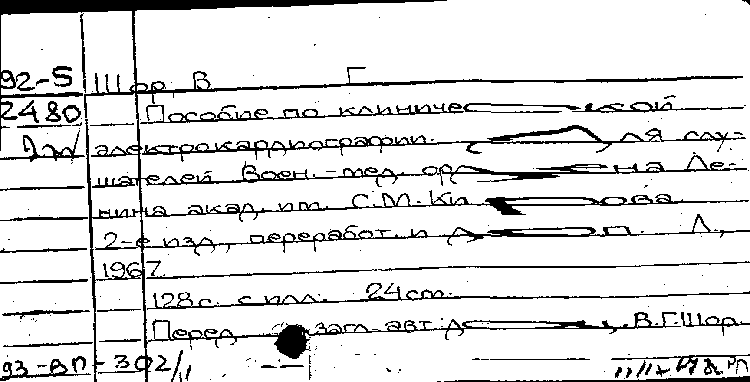 92-5 Шор, В Г
2480 Пособие по клинической
электрокардиографии. ля слу-
шателей Воен.-мед. на Ле-
нина акад. им. С.М. Ки ова
2-е изд., переработ. и п. Л.,
1967
128 с. с илл. 24 см.
Перед загл. авт.: В.Г.Шор
93-ВП-302/1